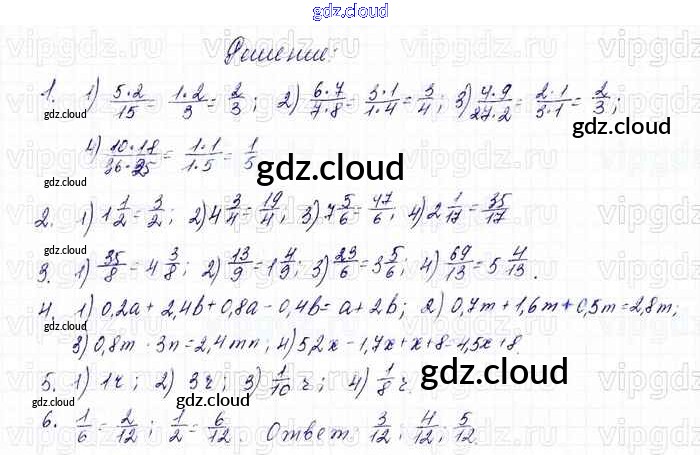 gdz.cloud
Решение:
1. 1) 5·2/15 = 1·2/3 = 2/3; 2) 6·7/7·8 = 3·1/1·4 = 3/4; 3) 4·9/27·2 = 2·1/3·1 = 2/3;
gdz.cloud gdz.cloud
4) 10·18/36·25 = 1·1/1·5 = 1/5
gdz.cloud gdz.cloud
2. 1) 1 1/2 = 3/2; 2) 4 3/4 = 19/4; 3) 7 5/6 = 47/6; 4) 2 1/17 = 35/17
gdz.cloud gdz.cloud
3. 1) 35/8 = 4 3/8; 2) 13/9 = 1 4/9; 3) 23/6 = 3 5/6; 4) 69/13 = 5 4/13.
4. 1) 0,2a + 2,4b + 0,8a - 0,4b = a + 2b; 2) 0,7m + 1,6m + 0,5m = 2,8m;
3) 0,8m · 3n = 2,4mn; 4) 5,2x - 1,7x + x + 8 = 4,5x + 8.
gdz.cloud
5. 1) 1ч; 2) 3ч; 3) 1/10 ч; 4) 1/8 ч.
gdz.cloud gdz.cloud
6. 1/6 = 2/12; 1/2 = 6/12. Ответ: 3/12; 4/12; 5/12.
gdz.cloud
vipgdz.ru